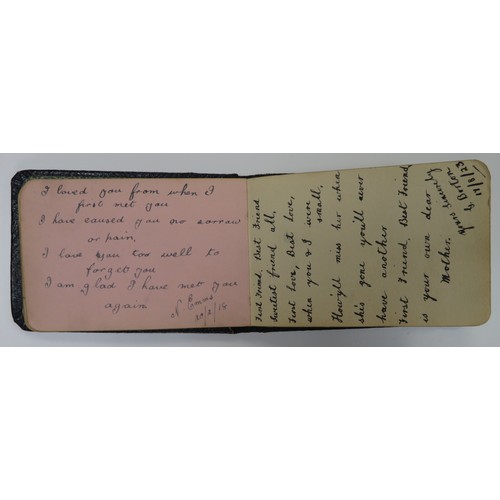 I loved you from when I
first met you
I have caused you no sorrow
or pain,
I love you too well to
forget you
I am glad I have met you
again
First Friend. Best Friend
Sweetest friend all,
First love, Best Love,
when you & I were
small,
How you'll miss her when
she's gone you'll never
have another
First Friend. Best Friend
is your own dear
Mother.
Yours sincerely
11/8/23